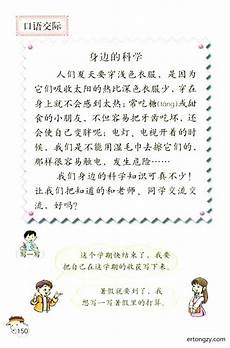 口语交际
身边的科学
人们夏天要穿浅色衣服，是因为
它们吸收太阳的热比深色衣服少，穿在
身上就不会感到太热；常吃糖(táng)或甜
食的小朋友，不但容易把牙吃坏，还
会使自己变胖呢；电灯、电视开着的时
候，我们是不能用湿毛巾去擦它们的，
那样很容易触电，发生危险……
我们身边的科学知识可真不少！
让我们把知道的和老师、同学交流交
流，好吗？
写一写
这个学期快结束了，我要
把自己在这学期的收获写下来。
暑假就要到了，我
想写一写暑假里的打算。
150
ertongzy.com